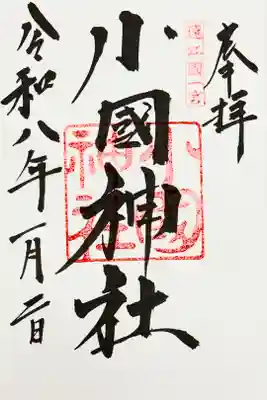 奉拝
遠江國一宮
小國神社
令和八年一月二日